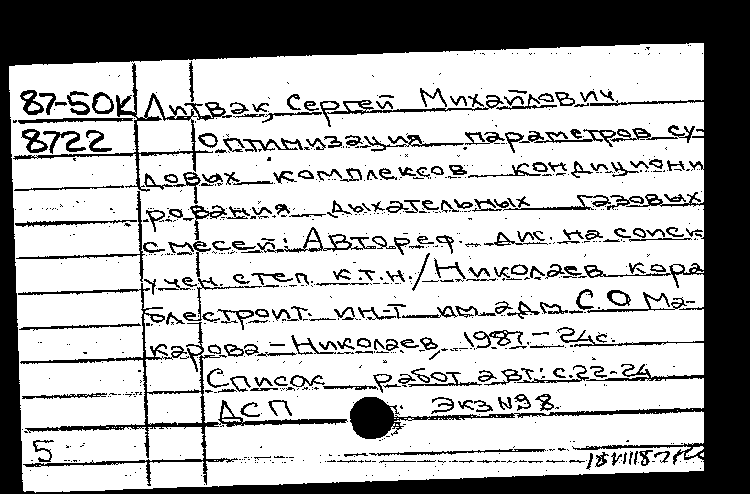 87-50К Литвак, Сергей Михайлович
8722 Оптимизация параметров су-
довых комплексов кондициони
рования дыхательных газовых
смесей: Автореф. дис. на соиск
учен. степ. к.т.н./Николаев. кора
блестроит. ин-т им. адм. С О Ма-
карова – Николаев, 1987. – 24с.
Список работ авт.: с.22-24
ДСП Экз №98.
5